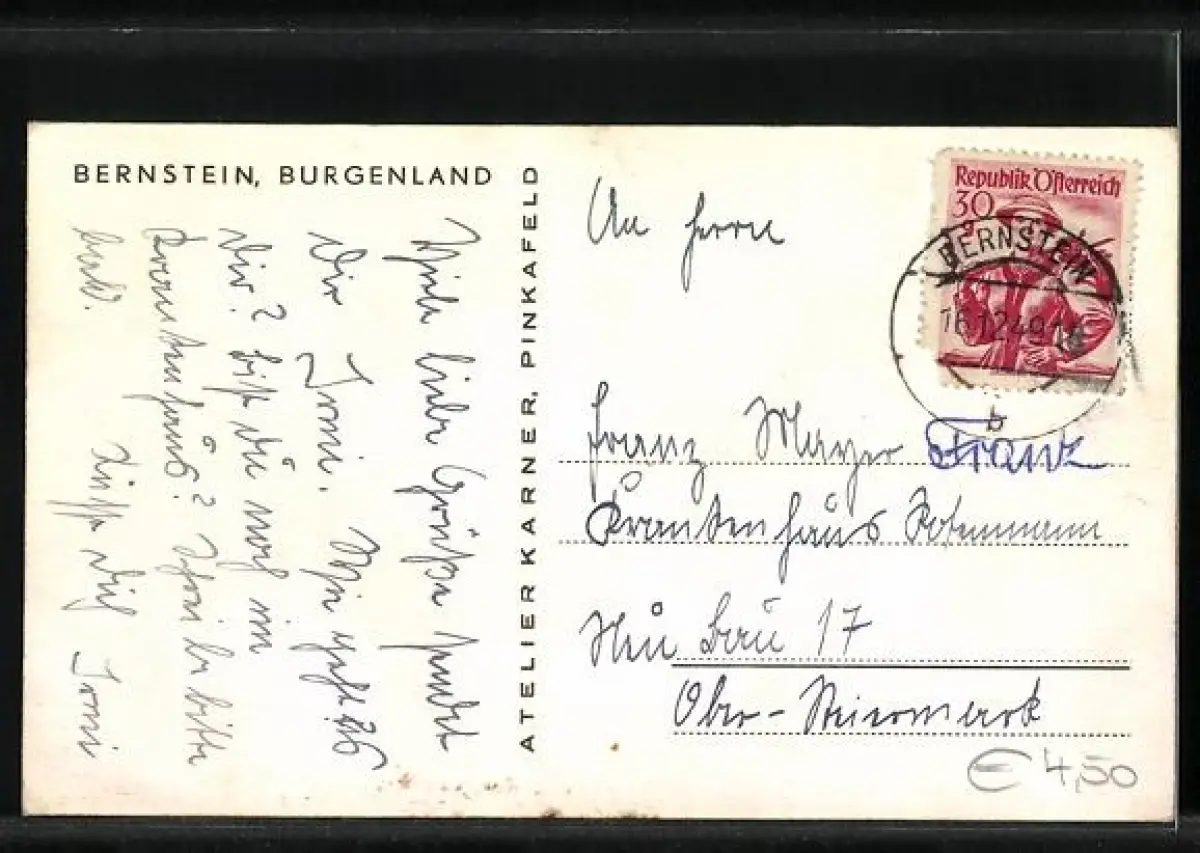 BERNSTEIN, BURGENLAND
Viele liebe Grüße sendet
Dir Irmi. Wie geht es
Dir? bist du noch im
Krankenhaus? Schreibe bitte
bald.
Küsse dich Irmi
ATELIER KARNER, PINKAFELD
An Herrn
Franz Mayer Franz
Krankenhaus Rotenmann
Neu Bau 17
Ober-Steiermark
Republik Österreich
30
BERNSTEIN
16.12.49
b
€ 4,50